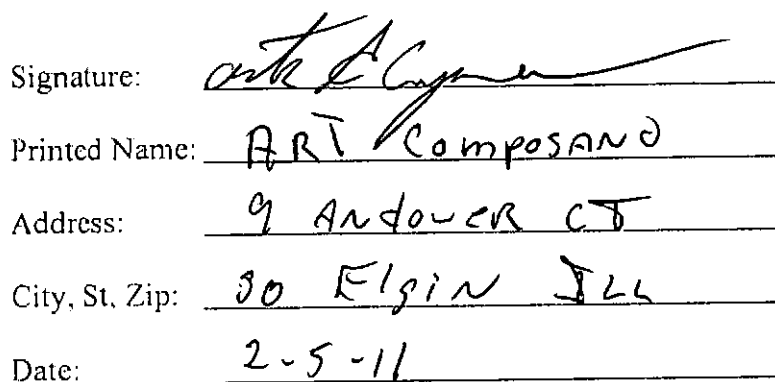 Signature:
Printed Name: ART COMPOSANO
Address: 9 ANdOVER CT
City, St, Zip: SO ElgiN ILL
Date: 2-5-11